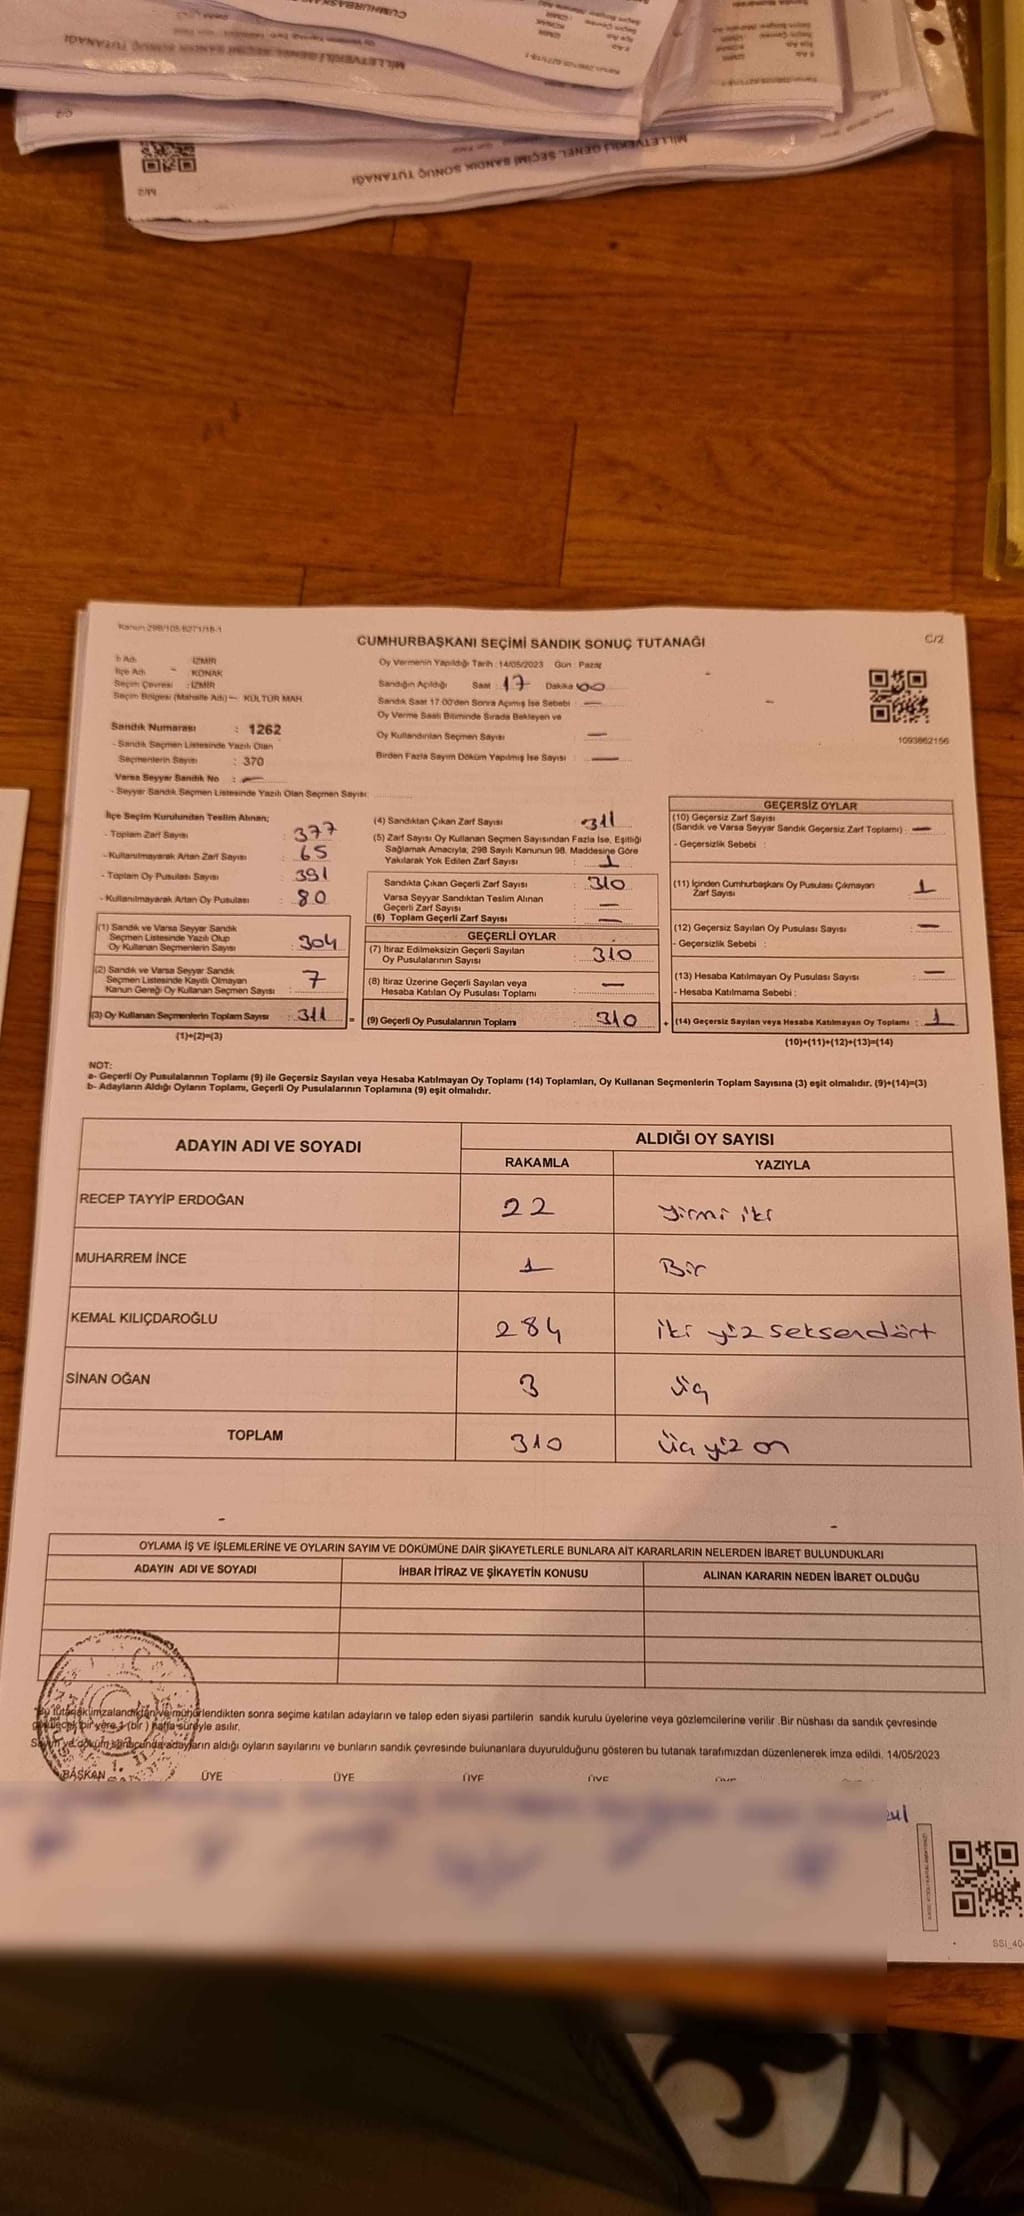 CUMHURBAŞKANI
MİLLETVEKİLİ GENEL SEÇİMİ SANDIK SONUÇ TUTANAĞI
MİLLETVEKİLİ GENEL SEÇİMİ SANDIK SONUÇ TUTANAĞI
M/2
Kanun:298/105,6271/18-1
CUMHURBAŞKANI SEÇİMİ SANDIK SONUÇ TUTANAĞI
C/2
İl Adı : İZMİR
İlçe Adı KONAK
Seçim Çevresi : İZMİR
Seçim Bölgesi (Mahalle Adı) KÜLTÜR MAH.
Oy Vermenin Yapıldığı Tarih : 14/05/2023 Gün : Pazar
Sandığın Açıldığı Saat : 17 Dakika 00
Sandık Saat 17.00'den Sonra Açımış İse Sebebi : —
Oy Verme Saati Bitiminde Sırada Bekleyen ve
Oy Kullandırılan Seçmen Sayısı —
Birden Fazla Sayım Döküm Yapılmış İse Sayısı : —
1093862156
Sandık Numarası : 1262
- Sandık Seçmen Listesinde Yazılı Olan
Seçmenlerin Sayısı : 370
Varsa Seyyar Sandık No : —
- Seyyar Sandık Seçmen Listesinde Yazılı Olan Seçmen Sayısı:
İlçe Seçim Kurulundan Teslim Alınan;
- Toplam Zarf Sayısı : 377
- Kullanılmayarak Artan Zarf Sayısı : 65
- Toplam Oy Pusulası Sayısı : 391
- Kullanılmayarak Artan Oy Pusulası : 80
(1) Sandık ve Varsa Seyyar Sandık
Seçmen Listesinde Yazılı Olup
Oy Kullanan Seçmenlerin Sayısı : 304
(2) Sandık ve Varsa Seyyar Sandık
Seçmen Listesinde Kayıtlı Olmayan
Kanun Gereği Oy Kullanan Seçmen Sayısı : 7
(3) Oy Kullanan Seçmenlerin Toplam Sayısı : 311 =
(1)+(2)=(3)
(4) Sandıktan Çıkan Zarf Sayısı 311
(5) Zarf Sayısı Oy Kullanan Seçmen Sayısından Fazla İse, Eşitliği
Sağlamak Amacıyla, 298 Sayılı Kanunun 98. Maddesine Göre
Yakılarak Yok Edilen Zarf Sayısı : 1
Sandıkta Çıkan Geçerli Zarf Sayısı : 310
Varsa Seyyar Sandıktan Teslim Alınan
Geçerli Zarf Sayısı : —
(6) Toplam Geçerli Zarf Sayısı : —
GEÇERLİ OYLAR
(7) İtiraz Edilmeksizin Geçerli Sayılan
Oy Pusulalarının Sayısı : 310
(8) İtiraz Üzerine Geçerli Sayılan veya
Hesaba Katılan Oy Pusulası Toplamı : —
(9) Geçerli Oy Pusulalarının Toplamı : 310 +
GEÇERSİZ OYLAR
(10) Geçersiz Zarf Sayısı
(Sandık ve Varsa Seyyar Sandık Geçersiz Zarf Toplamı) : —
- Geçersizlik Sebebi :
(11) İçinden Cumhurbaşkanı Oy Pusulası Çıkmayan
Zarf Sayısı : 1
(12) Geçersiz Sayılan Oy Pusulası Sayısı : —
- Geçersizlik Sebebi :
(13) Hesaba Katılmayan Oy Pusulası Sayısı : —
- Hesaba Katılmama Sebebi :
(14) Geçersiz Sayılan veya Hesaba Katılmayan Oy Toplamı : 1
(10)+(11)+(12)+(13)=(14)
NOT:
a- Geçerli Oy Pusulalarının Toplamı (9) ile Geçersiz Sayılan veya Hesaba Katılmayan Oy Toplamı (14) Toplamları, Oy Kullanan Seçmenlerin Toplam Sayısına (3) eşit olmalıdır. (9)+(14)=(3)
b- Adayların Aldığı Oyların Toplamı, Geçerli Oy Pusulalarının Toplamına (9) eşit olmalıdır.
ADAYIN ADI VE SOYADI ALDIĞI OY SAYISI
RAKAMLA YAZIYLA
RECEP TAYYİP ERDOĞAN 22 yirmi iki
MUHARREM İNCE 1 Bir
KEMAL KILIÇDAROĞLU 284 iki yüz seksendört
SİNAN OĞAN 3 üç
TOPLAM 310 üç yüz on
OYLAMA İŞ VE İŞLEMLERİNE VE OYLARIN SAYIM VE DÖKÜMÜNE DAİR ŞİKAYETLERLE BUNLARA AİT KARARLARIN NELERDEN İBARET BULUNDUKLARI
ADAYIN ADI VE SOYADI İHBAR İTİRAZ VE ŞİKAYETİN KONUSU ALINAN KARARIN NEDEN İBARET OLDUĞU
Bu tutanak imzalandıktan ve mühürlendikten sonra seçime katılan adayların ve talep eden siyasi partilerin sandık kurulu üyelerine veya gözlemcilerine verilir .Bir nüshası da sandık çevresinde
görülecek bir yere 1 (bir ) hafta süreyle asılır.
Sayım ve döküm sonucunda adayların aldığı oyların sayılarını ve bunların sandık çevresinde bulunanlara duyurulduğunu gösteren bu tutanak tarafımızdan düzenlenerek imza edildi. 14/05/2023
BAŞKAN ÜYE ÜYE ÜYE ÜYE ÜYE
SSI_40